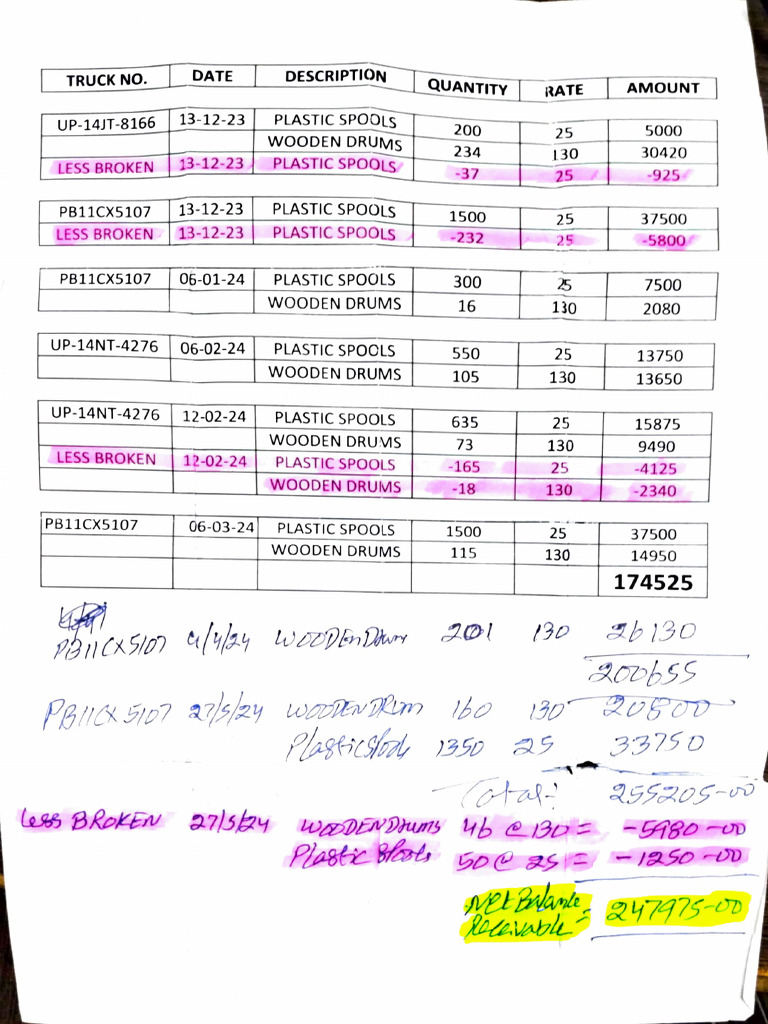 TRUCK NO. DATE DESCRIPTION QUANTITY RATE AMOUNT
UP-14JT-8166 13-12-23 PLASTIC SPOOLS 200 25 5000
WOODEN DRUMS 234 130 30420
LESS BROKEN 13-12-23 PLASTIC SPOOLS -37 25 -925
PB11CX5107 13-12-23 PLASTIC SPOOLS 1500 25 37500
LESS BROKEN 13-12-23 PLASTIC SPOOLS -232 25 -5800
PB11CX5107 06-01-24 PLASTIC SPOOLS 300 25 7500
WOODEN DRUMS 16 130 2080
UP-14NT-4276 06-02-24 PLASTIC SPOOLS 550 25 13750
WOODEN DRUMS 105 130 13650
UP-14NT-4276 12-02-24 PLASTIC SPOOLS 635 25 15875
WOODEN DRUMS 73 130 9490
LESS BROKEN 12-02-24 PLASTIC SPOOLS -165 25 -4125
WOODEN DRUMS -18 130 -2340
PB11CX5107 06-03-24 PLASTIC SPOOLS 1500 25 37500
WOODEN DRUMS 115 130 14950
174525
PB11CX5107 4/4/24 WOODEN Drum 201 130 26130
200655
PB11CX5107 27/5/24 WOODEN DRUM 160 130 20800
Plastic Spools 1350 25 33750
Total:- 255205-00
Less BROKEN 27/5/24 WOODEN Drums 46 @ 130 = -5980-00
Plastic Spools 50 @ 25 = -1250-00
Net Balance
Receivable = 247975-00